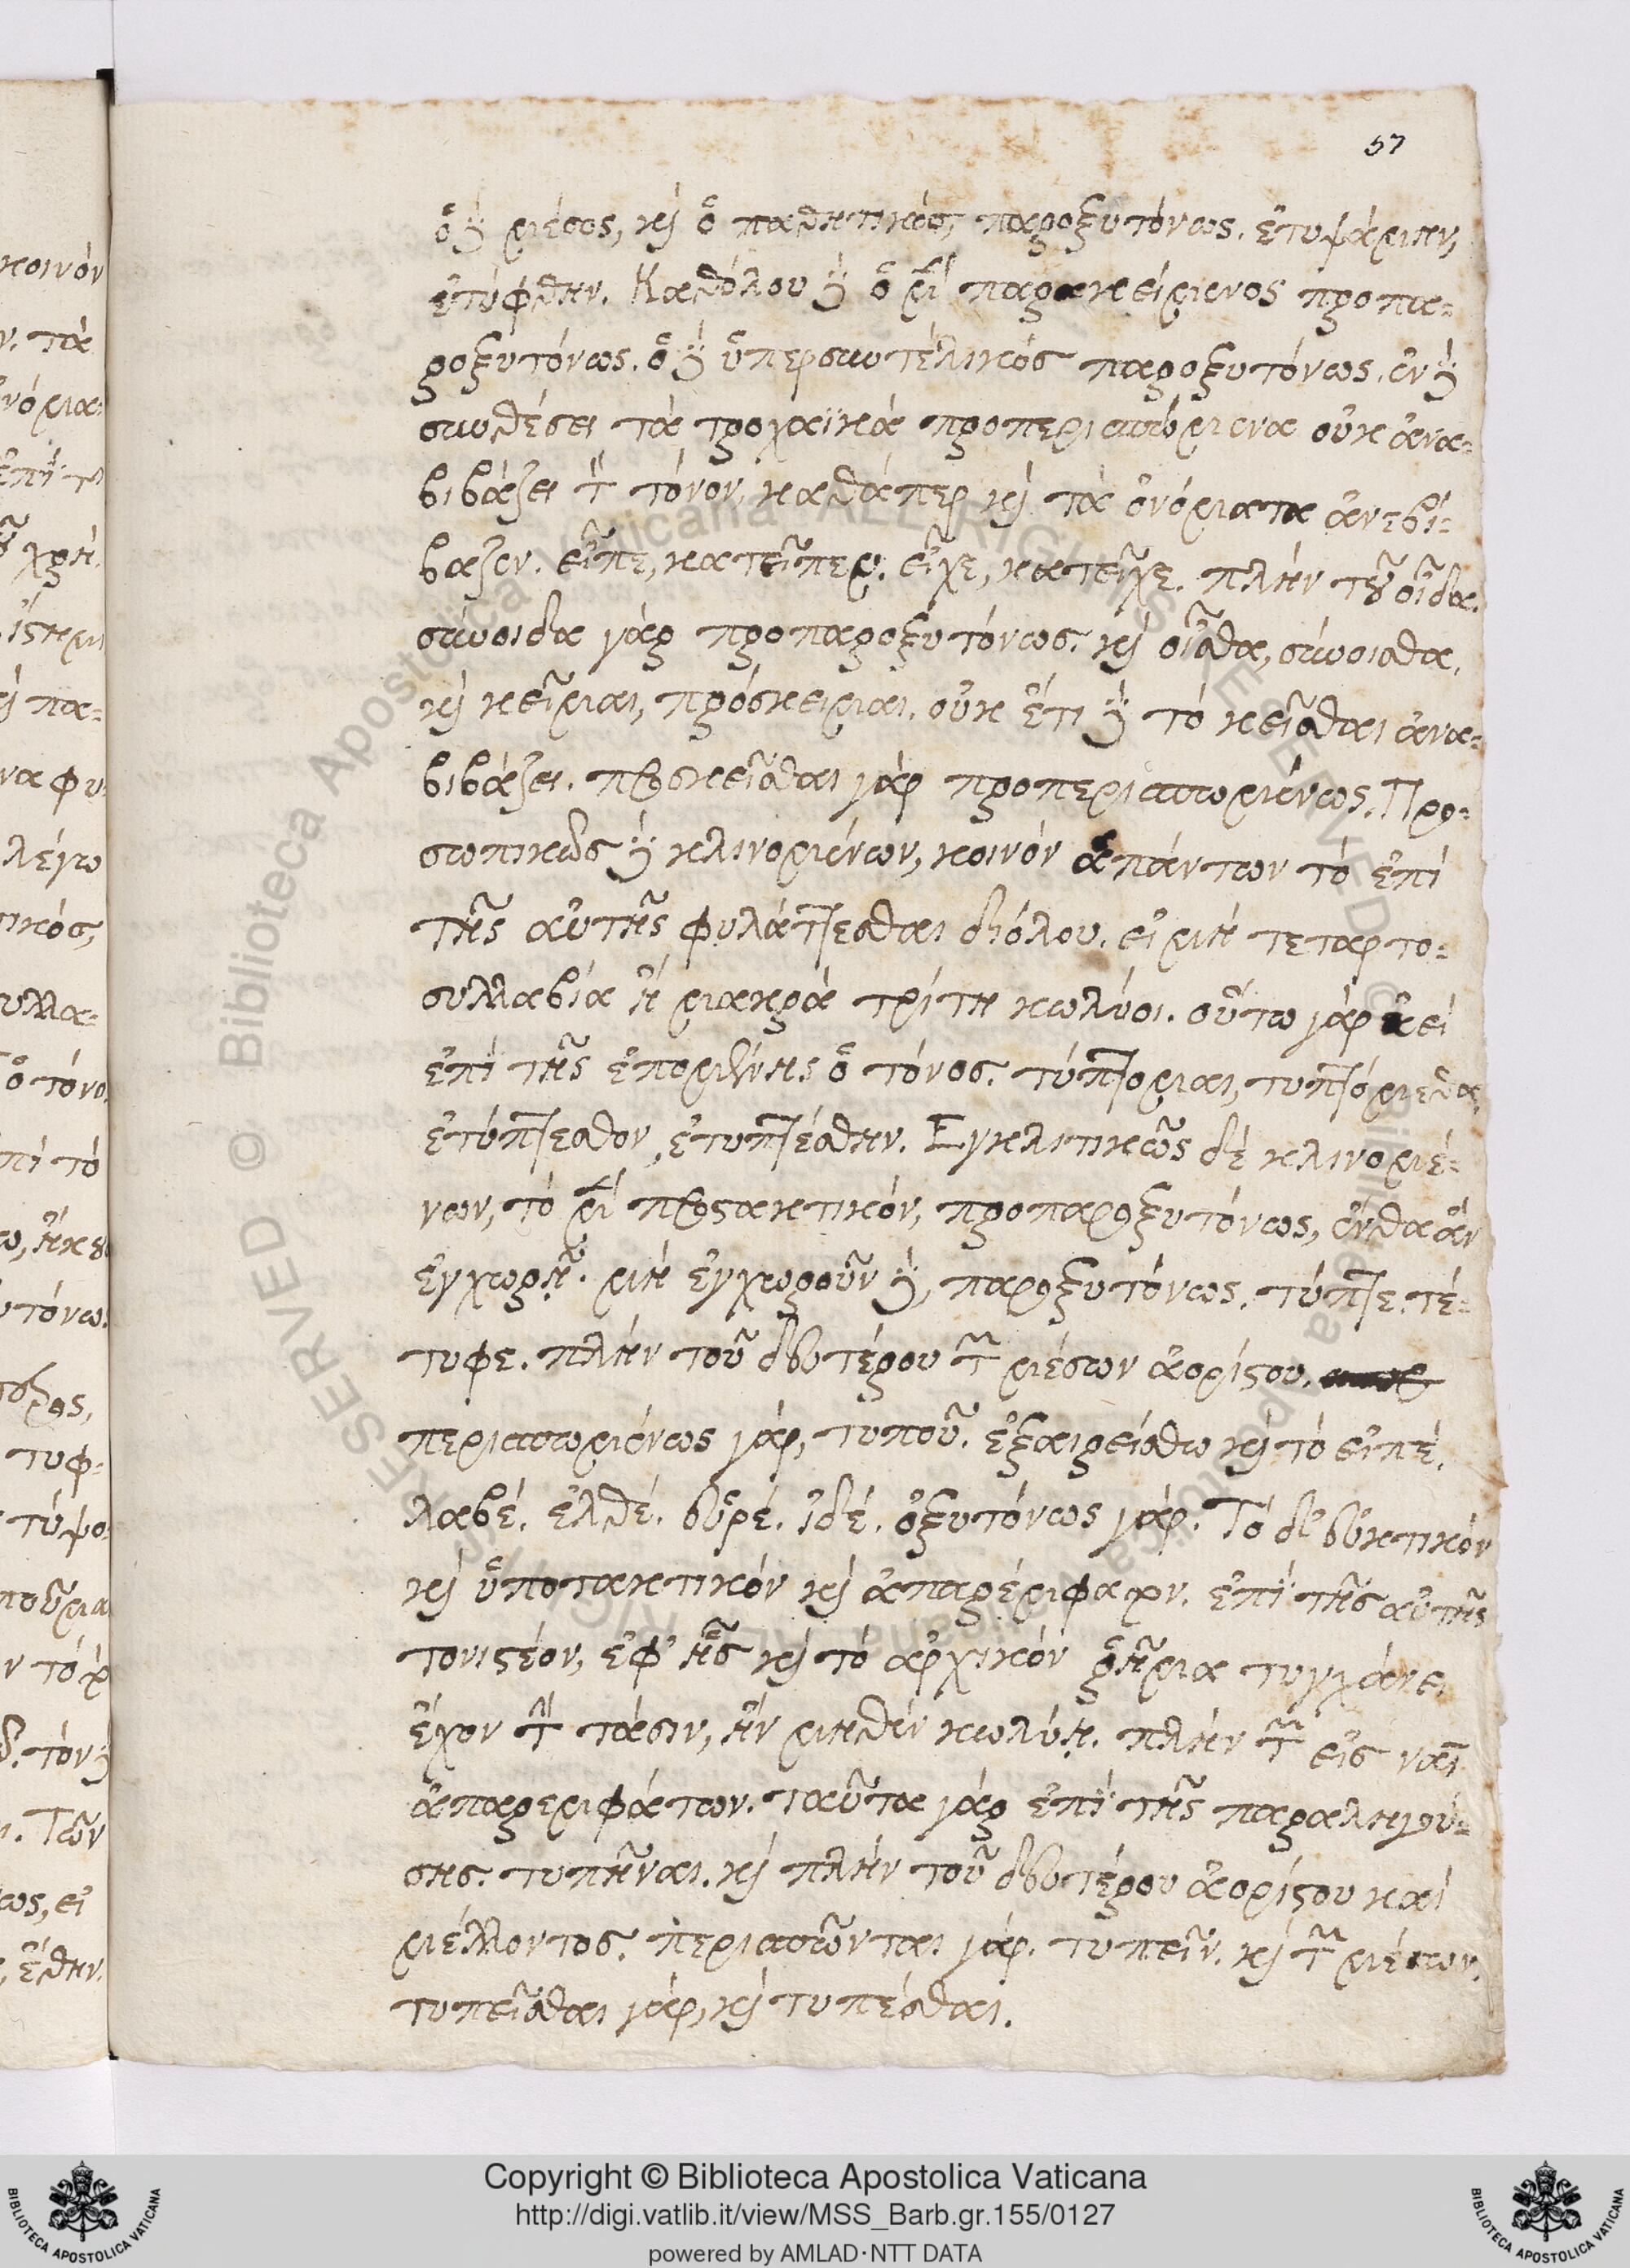 57
ὁ δὲ μέσος, καὶ ὁ παθητικὸς, παροξυτόνως. ἐτυψάμην,
ἐτύφθην. Καθόλου δὲ ὁ μὲν παρακείμενος προπα-
ροξυτόνως. ὁ δὲ ὑπερσυντελικὸς παροξυτόνως. ἐν δὲ
συνθέσει τὰ τροχαϊκὰ προπερισπώμενα οὐκ ἀνα-
βιβάζει τὸν τόνον, καθάπερ καὶ τὰ ὀνόματα ἀνεβί-
βαζεν. εἶπε, κατεῖπεν. εἶχε, κατεῖχε. πλὴν τοῦ οἶδα.
σύνοιδα γὰρ προπαροξυτόνως. καὶ οἶσθα, σύνοισθα.
καὶ κεῖμαι, πρόσκειμαι. οὐκ ἔτι δὲ τὸ κεῖσθαι ἀνα-
βιβάζει. προσκεῖσθαι γὰρ προπερισπωμένως. Προ-
σωπικῶς δὲ κλινομένων, κοινὸν ἁπάντων τὸ ἐπὶ
τῆς αὐτῆς φυλάττεσθαι διόλου. εἰ μὴ τεταρτο-
συλλαβία ἢ μακρὰ τρίτη κωλύοι. οὕτω γὰρ ἀεὶ
ἐπὶ τῆς ἑπομένης ὁ τόνος. τύπτομαι, τυπτόμεθα,
ἐτύπτεσθον, ἐτυπτέσθην. Εγκλιτικῶς δὲ κλινομέ-
νων, τὸ μὲν προστακτικὸν, προπαροξυτόνως, ἔνθα ἂν
ἐγχωρῇ. μὴ ἐγχωροῦν δὲ, παροξυτόνως. τύπτε. τέ-
τυφε. πλὴν τοῦ δευτέρου τῶν μέσων ἀορίστου.
περισπωμένως γὰρ, τυποῦ. ἐξαιρείσθω καὶ τὸ εἰπέ.
λαβέ. ἐλθέ. εὑρέ. ἰδέ. ὀξυτόνως γάρ. Τὸ δ' εὐκτικὸν
καὶ ὑποτακτικὸν καὶ ἀπαρέμφατον. ἐπὶ τῆς αὐτῆς
τονιστέον, ἐφ' ἧς καὶ τὸ ἀρχικὸν ῥῆμα τυγχάνει
ἔχον τὴν τάσιν, ἢν μηδὲν κωλύῃ. πλὴν τῶν εἰς ναι
ἀπαρεμφάτων. ταῦτα γὰρ ἐπὶ τῆς παραληγού-
σης. τυπῆναι. καὶ πλὴν τοῦ δευτέρου ἀορίστου καὶ
μέλλοντος. περισπῶνται γάρ. τυπεῖν. καὶ τῶν μέσων.
τυπεῖσθαι γὰρ, καὶ τυπέσθαι.
Copyright © Biblioteca Apostolica Vaticana
http://digi.vatlib.it/view/MSS_Barb.gr.155/0127
powered by AMLAD·NTT DATA